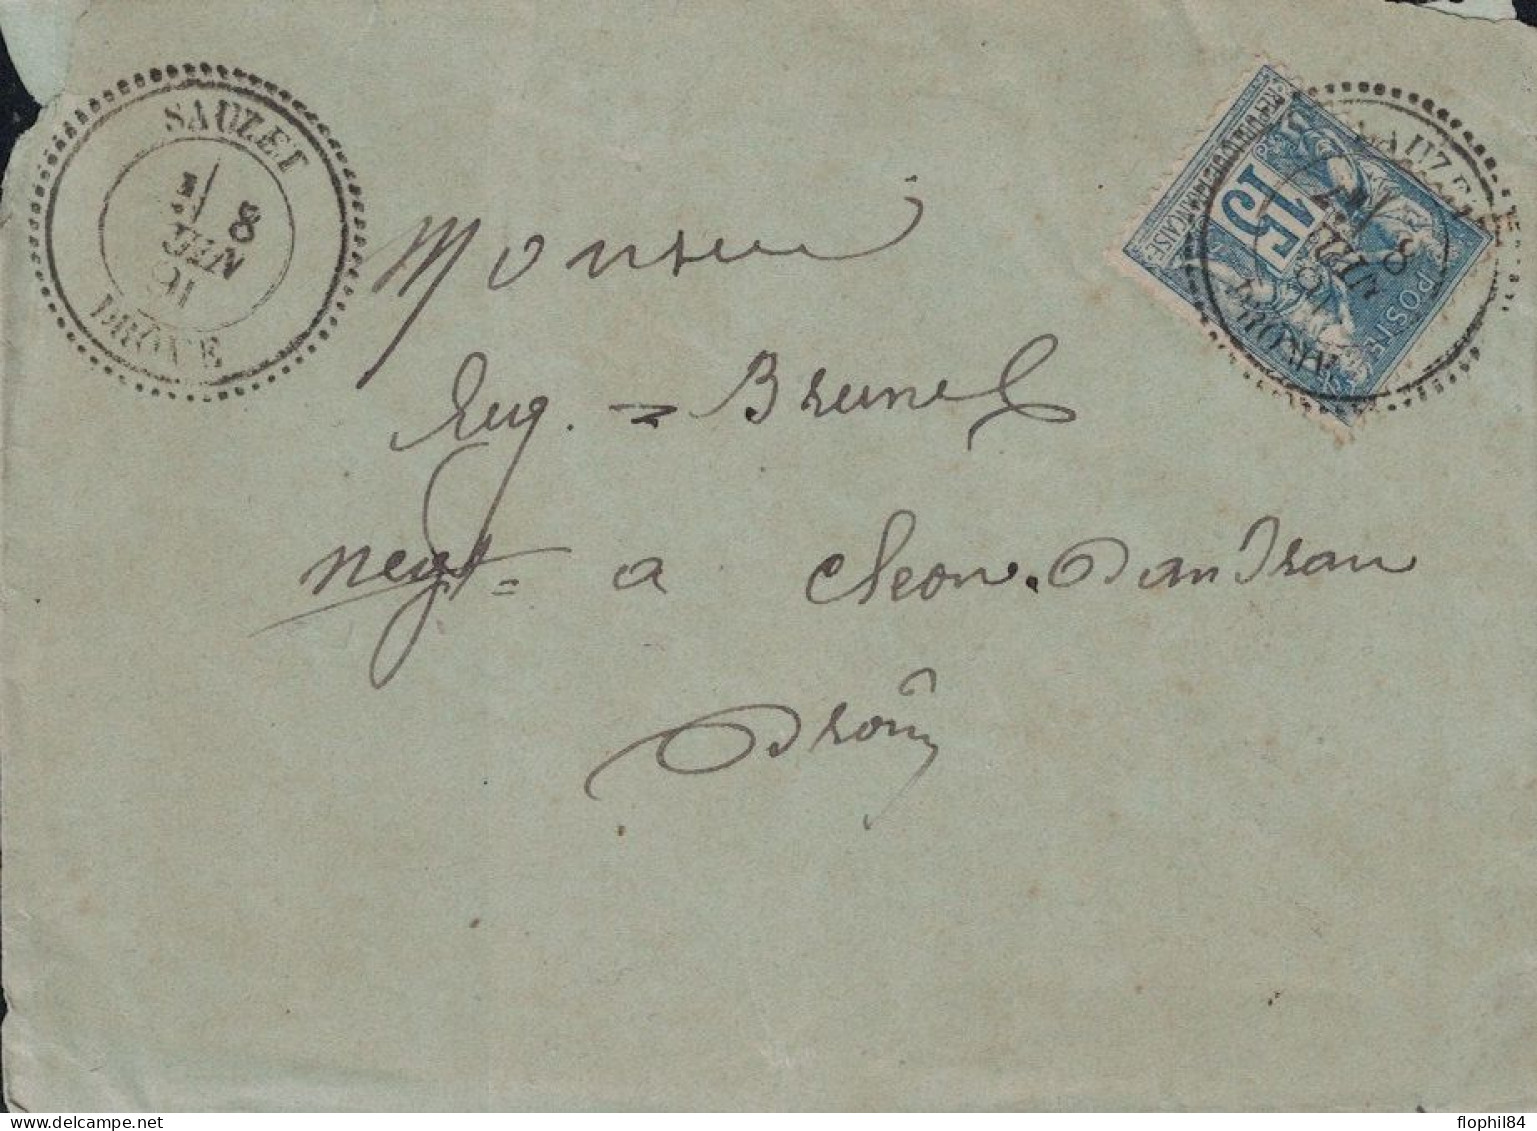 SAUZET
8
91
DROME
REPUBLIQUE FRANÇAISE
15
POSTES
SAUZET
8
DROME
Monsieur
Eug. = Brunel
negt = a Cleon. Dandran
Drôme
flophil84